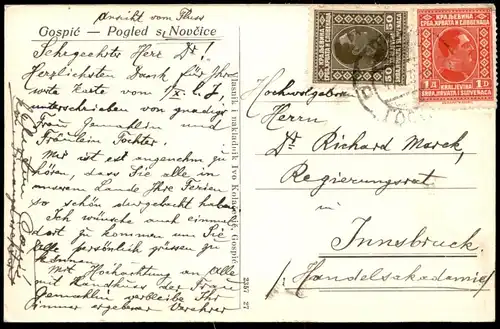 Ansicht vom Fluss
Gospić — Pogled s Novčice
Sehr geehrter Herr Dr!
Herzlichsten Dank für Ihre
werte Karte vom X. l. J.
unterschrieben von gnädiger
Frau Gemahlin und
Fräulein Tochter.
Mir ist est angenehm zu
hören, dass Sie alle in
unserem Lande Ihre Ferien
so schön durgebracht haben.
Ich wünsche auch einmal
dort zu kommen um Sie
alle persönlich grüssen zu
können.
Mit Hochachtung an Alle
mit Handkuss der Frau
Gemahlin verbleibe Ihr
immer ergebener Verehrer
Vlasnik i nakladnik Ivo Kolačević, Gospić
2357 27
КРАЉЕВИНА
СРБА, ХРВАТА И СЛОВЕНАЦА
50 50
КРАЉЕВИНА
СРБА, ХРВАТА И СЛОВЕНАЦА
1 Д 1 D
KRALJEVINA
SRBA, HRVATA I SLOVENACA
Hochwolgeboren
Herrn
Dr Richard Marek,
Regierungsrat
in
Innsbruck
/: Handelsakademie